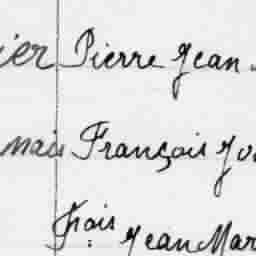 ier Pierre Jean
nais François
Frois Jean Mar